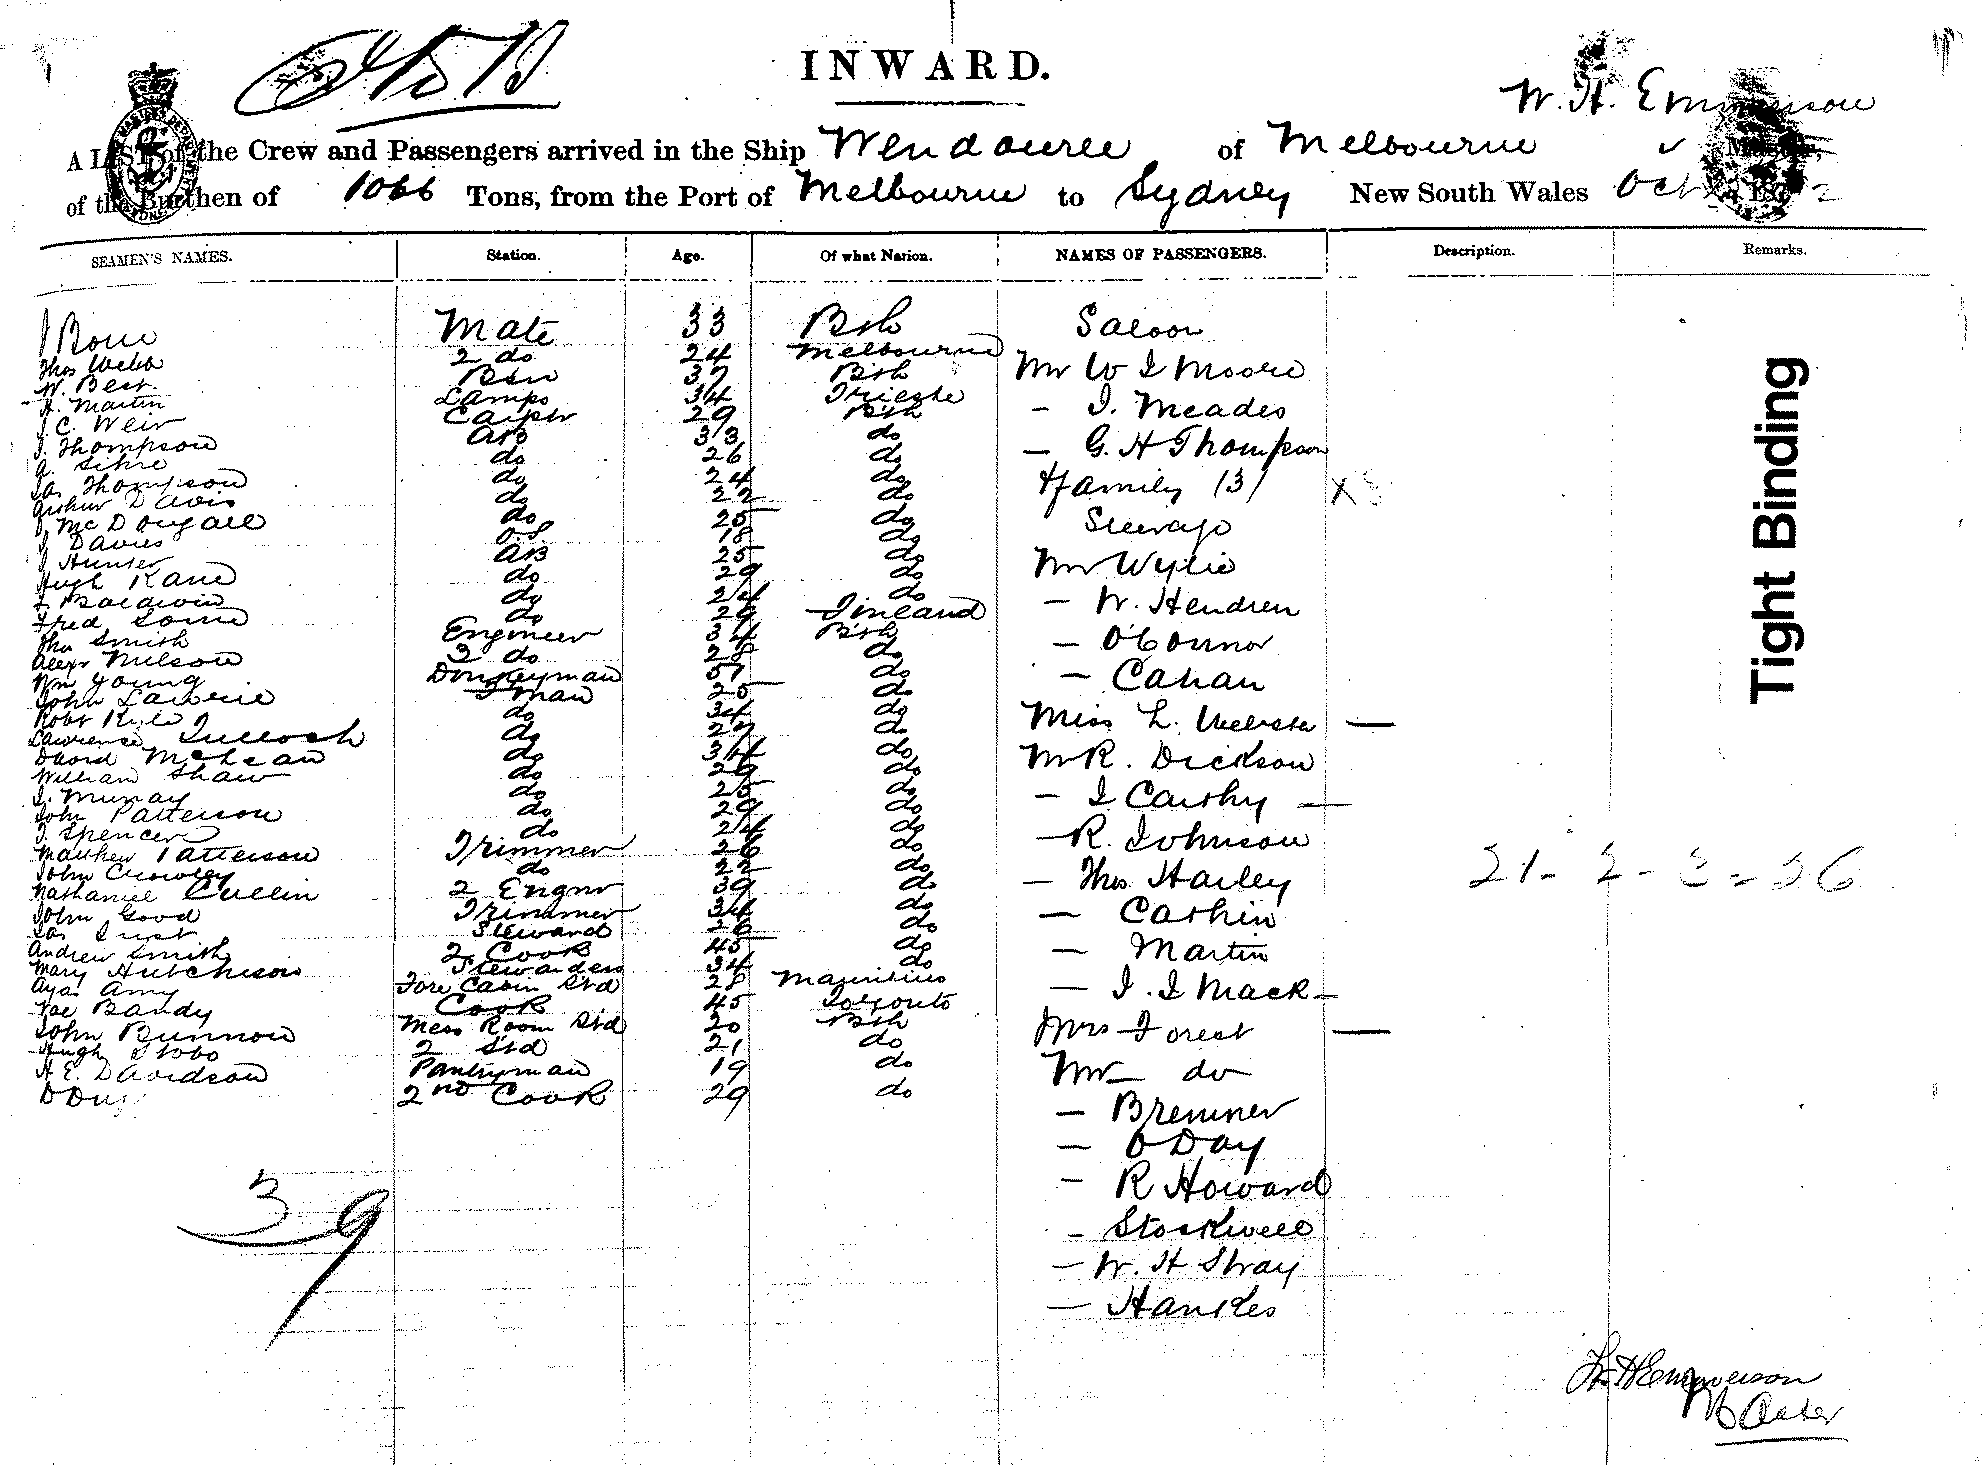 INWARD.
W. H. Emmerson
A LIST of the Crew and Passengers arrived in the Ship Wendouree of Melbourne
of the Burthen of 1066 Tons, from the Port of Melbourne to Sydney New South Wales Oct
SEAMEN'S NAMES. Station. Age. Of what Nation. NAMES OF PASSENGERS. Description. Remarks.
Mate 33 Bsh Saloon
Thos Webb 2 do 24 Melbourne
W. Best 37 Bsh Mr W I Moore
H. Martin Lamps 34 Trieste
J. C. Weir Carptr 29 Bsh — J. Meades
J. Thompson AB 33 do
A. do 26 do — G. H Thompson
Jas Thompson do 24 do
Arthur Davis do 22 do & family (3)
J McDougall do 25 do
J Davies OS 18 do Steerage
J Hunter AB 25 do
Hugh Kane do 29 do Mr Wylie
J Baldwin do 24 do
Fred do 29 Finland — W. Hendren
Thos Smith Engineer 34 Bsh
Alexr Neilson 3 do 28 do — O'Connor
Wm Young Donkeyman 57 do
John Lawrie F man 25 do — Cahan
Robt Kyle do 34 do
Lawrence Tulloch do 27 do Miss L. Webster —
David McLean do 34 do
William Shaw do 29 do Mr R. Dickson
J. Murray do 25 do
John Patterson do 29 do — J Carthy —
J Spencer do 24 do
Matthew Patterson Trimmer 26 do — R. Johnson
John Crowley do 22 do
Nathaniel Cullin 2 Engnr 39 do — Thos Harley
John Good Trimmer 34 do
Jas Just Steward 26 do — Cashin
Andrew Smith 2 Cook 45 do
Mary Hutchison Stewardess 34 do — Martin
Amy Fore Cabin Std 28 Mauritius
Bandy Cook 45 — J. J Mack —
John Bunnow Mess Room Std 20 Bsh
Hugh Stobo 2 Std 21 do Mrs Forest —
H. E. Davidson Pantryman 19 do
2nd Cook 29 do Mr — do
— Bremner
— O Day
— R Howard
— Stockwell
— W. H Stray
— Hankles
39
21 - 2 - 3 = 26
Tight Binding
W H Emmerson
Master